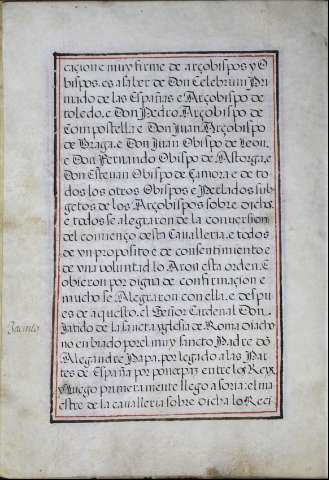 cacion e muy firme de arçobispos y O
bispos. es a saber de Don Celebruni Pri
mado de las Españas e Arçobispo de
toledo. e Don Pedro Arçobispo de
Compostella e Don Juan Arçobispo
de Braga. e Don Juan Obispo de Leon.
e Don Fernando Obispo de Astorga. e
Don Esteuan Obispo de Çamora e de to
dos los otros Obispos e Perlados sub
getos de los Arçobispos sobre dichos
e todos se alegraron de la conuersion
del comienço desta Cavalleria. e todos
de vn proposito e de consentimiento e
de vna voluntad loaron esta orden. E
obieron por digna de confirmacion e
mucho se Alegraron con ella. e despu
es de aquesto. el Señor Cardenal Don
Jacinto
Jatido de la sancta yglesia de Roma diacho
no enbiado por el muy sancto Padre dõ
Alexandre Papa. por legado a las Par
tes de España por poner paz entre los Reyx
luego primeramente llego a soria: el ma
estre de la caualleria sobre dicha lo Reci